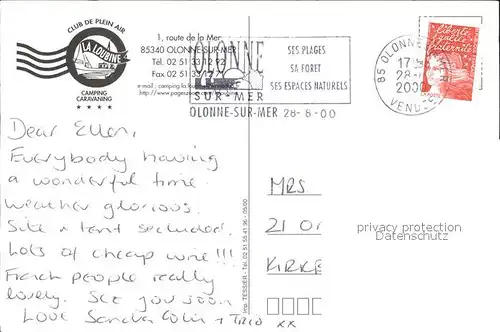 CLUB DE PLEIN AIR
LA LOUBINE
CAMPING
CARAVANING
1, route de la Mer
85340 OLONNE-SUR-MER
Tél. 02 51 33 12 92
Fax 02 51 33
e-mail : camping.la
http://www.pageszoom
OLONNE
SUR-MER
SES PLAGES
SA FORET
SES ESPACES NATURELS
OLONNE-SUR-MER 28-8-00
85 OLONNE
17
28-
2000
VENDEE
Liberté
Égalité
Fraternité
LA POSTE
Dear Ellen,
Everybody having
a wonderful time.
Weather glorious.
Site + tent secluded.
Lots of cheap wine!!!
French people really
lovely. See you soon
Love Sandra Colin + TRIO xx
Imp. TESSIER - Tél. 02 51 55 41 96 - 05/00
MRS
21 O
KIRKE
privacy protection
Datenschutz